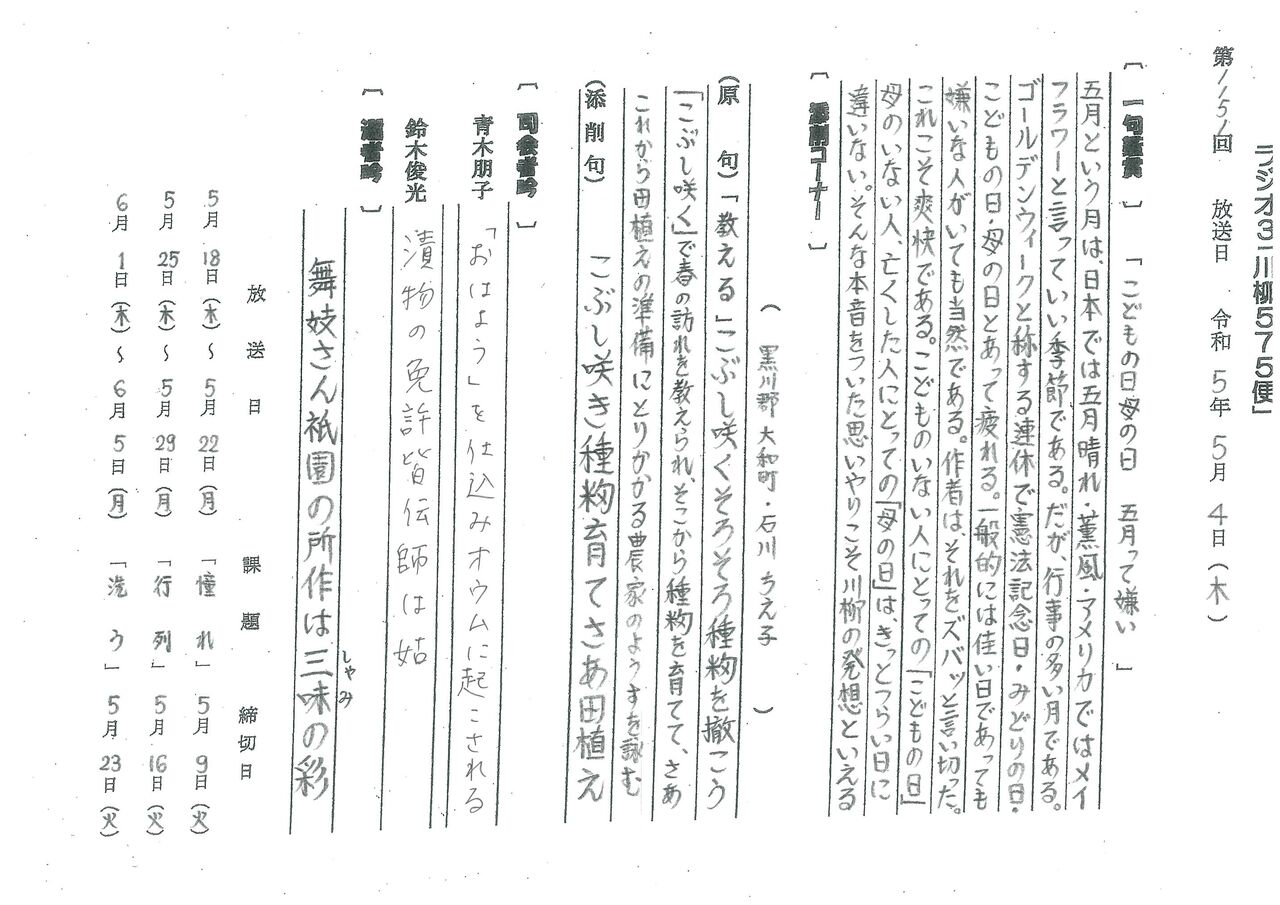 ラジオ3「川柳575便」
第1151回　放送日　令和 5年 5月 4日(木)
〔一句鑑賞〕「こどもの日母の日　五月って嫌い」
五月という月は、日本では五月晴れ・薫風・アメリカではメイ
フラワーと言っていい季節である。だが、行事の多い月である。
ゴールデンウィークと称する連休で憲法記念日・みどりの日・
こどもの日・母の日とあって疲れる。一般的には佳い日であっても
嫌いな人がいても当然である。作者は、それをズバッと言い切った。
これこそ爽快である。こどものいない人にとっての「こどもの日」
母のいない人、亡くした人にとっての「母の日」は、きっとつらい日に
違いない。そんな本音をついた思いやりこそ川柳の発想といえる
〔添削コーナー〕
(黒川郡大和町・石川ちえ子)
(原　句)「教える」こぶし咲くそろそろ種籾を撒こう
「こぶし咲く」で春の訪れを教えられ、そこから種籾を育てて、さあ
これから田植えの準備にとりかかる農家のようすを詠む
(添削句)　こぶし咲き種籾育てさあ田植え
〔司会者吟〕
青木朋子　「おはよう」を仕込みオウムに起こされる
鈴木俊光　漬物の免許皆伝師は姑
〔選者吟〕
舞妓さん祇園の所作は三味の彩
しゃみ
放送日　課題　締切日
5月 18日(木)～ 5月 22日(月)「憧れ」5月 9日(火)
5月 25日(木)～ 5月 29日(月)「行列」5月 16日(火)
6月 1日(木)～ 6月 5日(月)「洗う」5月 23日(火)